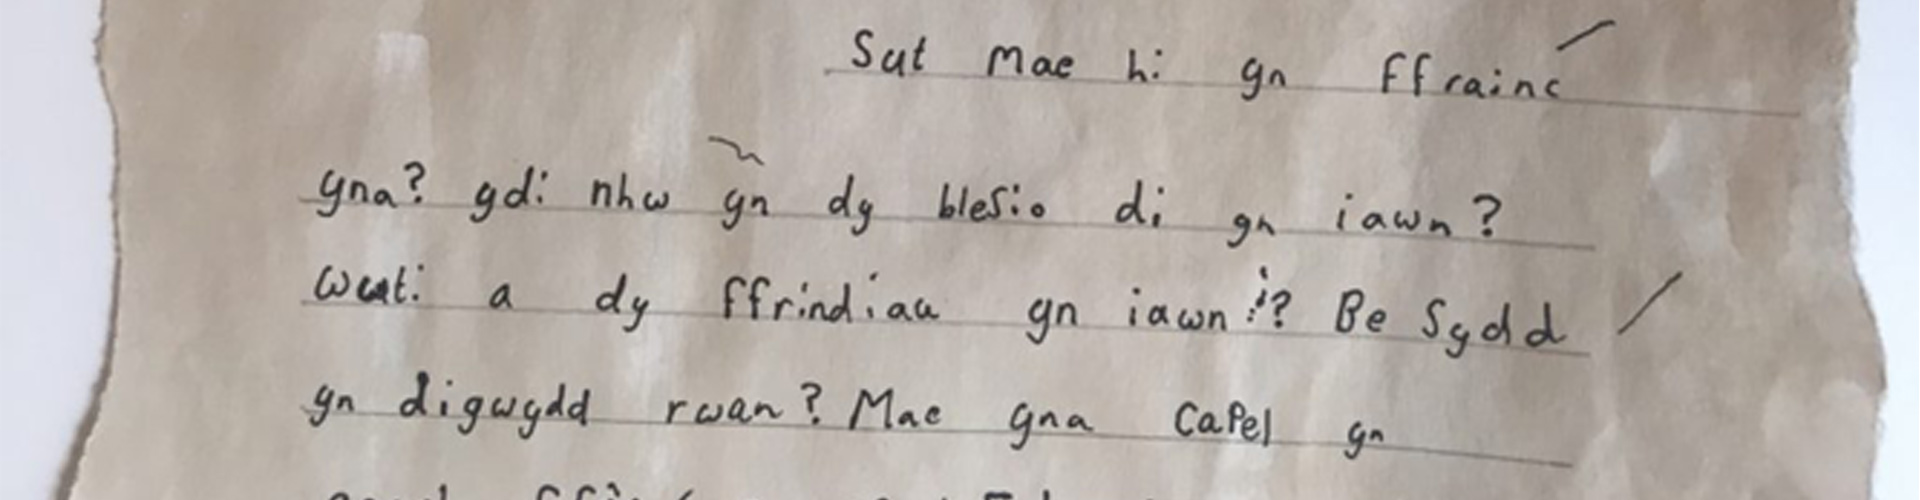 Sut mae hi yn Ffrainc
yna? ydi nhw yn dy blesio di yn iawn?
a dy ffrindiau yn iawn? Be sydd
yn digwydd rwan? Mae yna capel yn